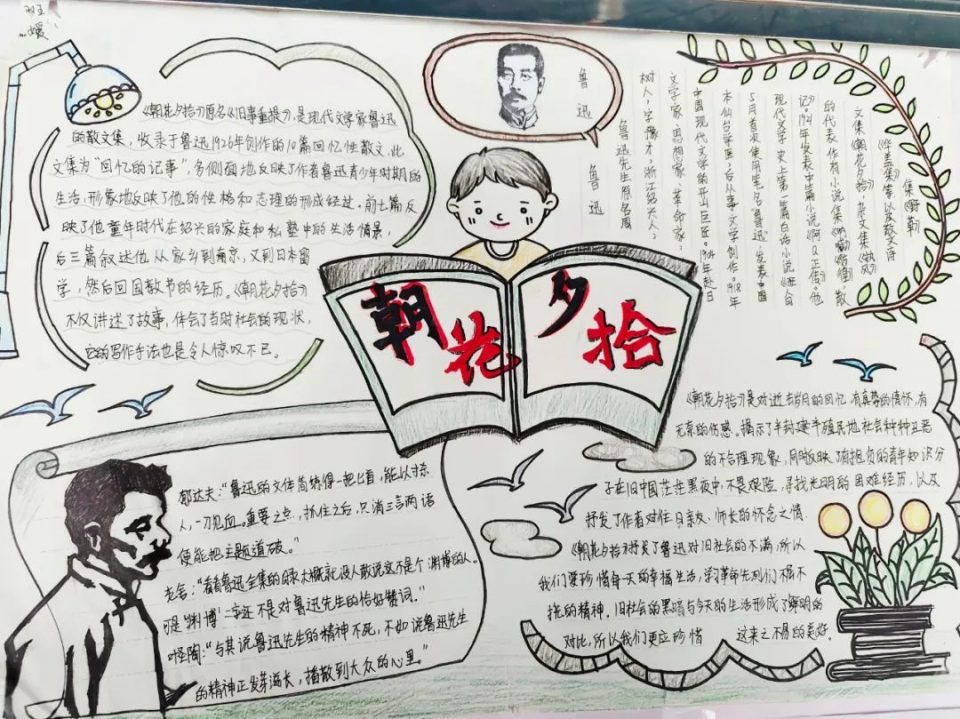 《朝花夕拾》原名《旧事重提》，是现代文学家鲁迅
的散文集，收录于鲁迅1926年创作的10篇回忆性散文，此
文集为“回忆的记事”，多侧面地反映了作者鲁迅青少年时期的
生活，形象地反映了他的性格和志理的形成经过。前七篇反
映了他童年时代在绍兴的家庭和私塾中的生活情景，
后三篇叙述他从家乡到南京，又到日本留
学，然后回国教书的经历。《朝花夕拾》
不仅讲述了故事，体会了当时社会的现状，
它的写作手法也是令人惊叹不已。
鲁迅
鲁迅
鲁迅先生原名周
树人，字豫才，浙江绍兴人，
文学家、思想家、革命家，
中国现代文学的开山巨匠。1904年赴日
本仙台学医，后从事文学创作。1918年
5月首次使用笔名“鲁迅”发表中国
现代文学史上第一篇白话小说《狂人日
记》。1921年发表中篇小说《阿Q正传》。他
的代表作有小说集《呐喊》《彷徨》，散
文集《朝花夕拾》，杂文集《热风》
《华盖集》等以及散文诗
集《野草》
朝花夕拾
郁达夫：“鲁迅的文体简练得一把匕首，能以寸杀
人，一刀见血。重要之点，抓住之后，只消三言两语
便能把主题道破。”
老舍：“看看鲁迅全集的目录大概就没人敢说这不是个渊博的人。
可是‘渊博’二字还不是对鲁迅先生的恰好赞词。”
叶圣陶：“与其说鲁迅先生的精神不死，不如说鲁迅先生
的精神正发芽滋长，播散到大众的心里。”
《朝花夕拾》是对逝去岁月的回忆，有真挚的情怀，有
无奈的伤感。揭示了半封建半殖民地社会种种丑恶
的不合理现象，同时反映了有抱负的青年知识分
子在旧中国茫茫黑夜中，不畏艰险，寻找光明的困难经历，以及
抒发了作者对往日亲友、师长的怀念之情。
《朝花夕拾》抒发了鲁迅对旧社会的不满，所以
我们要珍惜每一天的幸福生活，学习革命先烈们不屈不
挠的精神。旧社会的黑暗与今天的生活形成了鲜明的
对比，所以我们更应珍惜 这来之不易的美好。